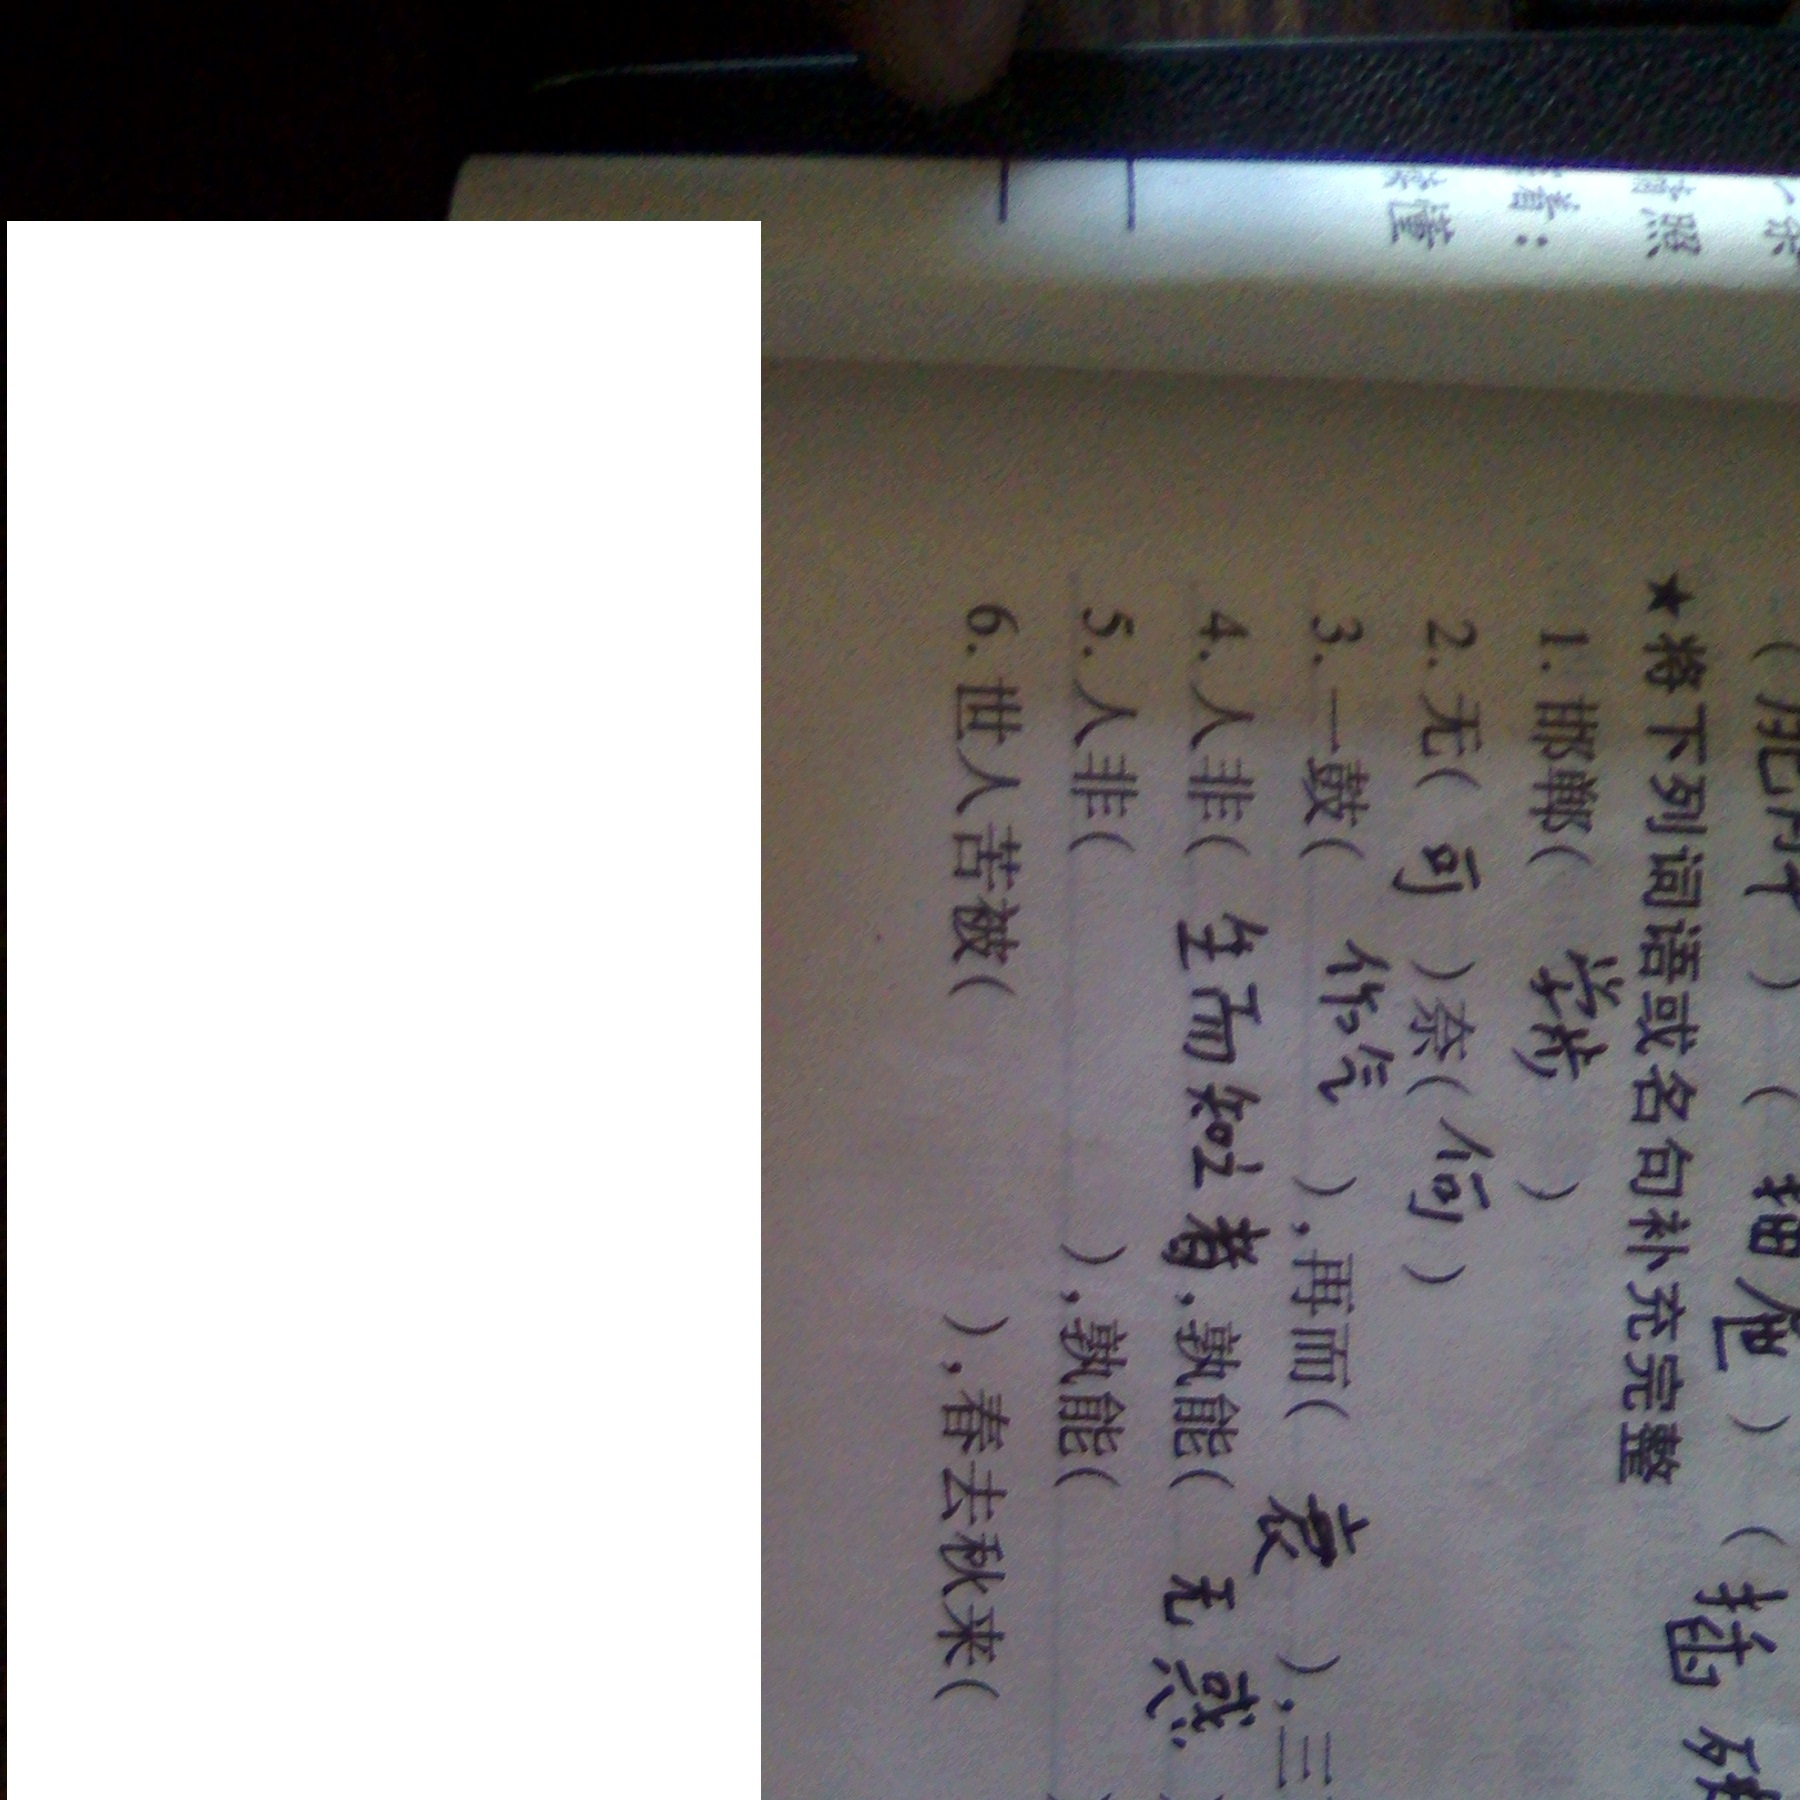 ( 肥所 ) ( 猫他 ) ( 捂
★将下列词语或名句补充完整
1. 邯郸( 学步 )
2. 无( 可 )奈( 何 )
3. 一鼓( 作气 ),再而( 衰 ),三
4. 人非( 生而知之者,孰能( 无惑
5. 人非( ),孰能(
6. 世人苦被( ),春去秋来(